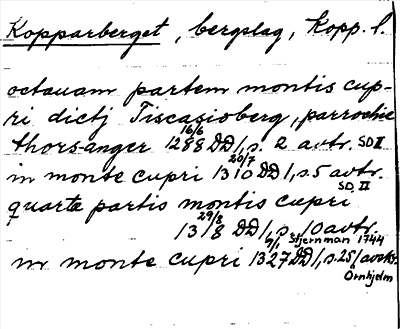 Kopparberget, bergslag, Kopp. l.
octauam partem montis cup-
ri dictj Tiscasioberg, parrochie
thors-anger 16/6 1288 DD 1, s. 2 avtr. SD II
in monte cupri 20/7 1310 DD 1, s. 5 avtr. SD II
quarta partis montis cupri
29/8 1318 DD 1, s. 10 avtr. Stjernman 1744
in monte cupri 1327 DD 1, s. 251 avskr. Örnhjelm